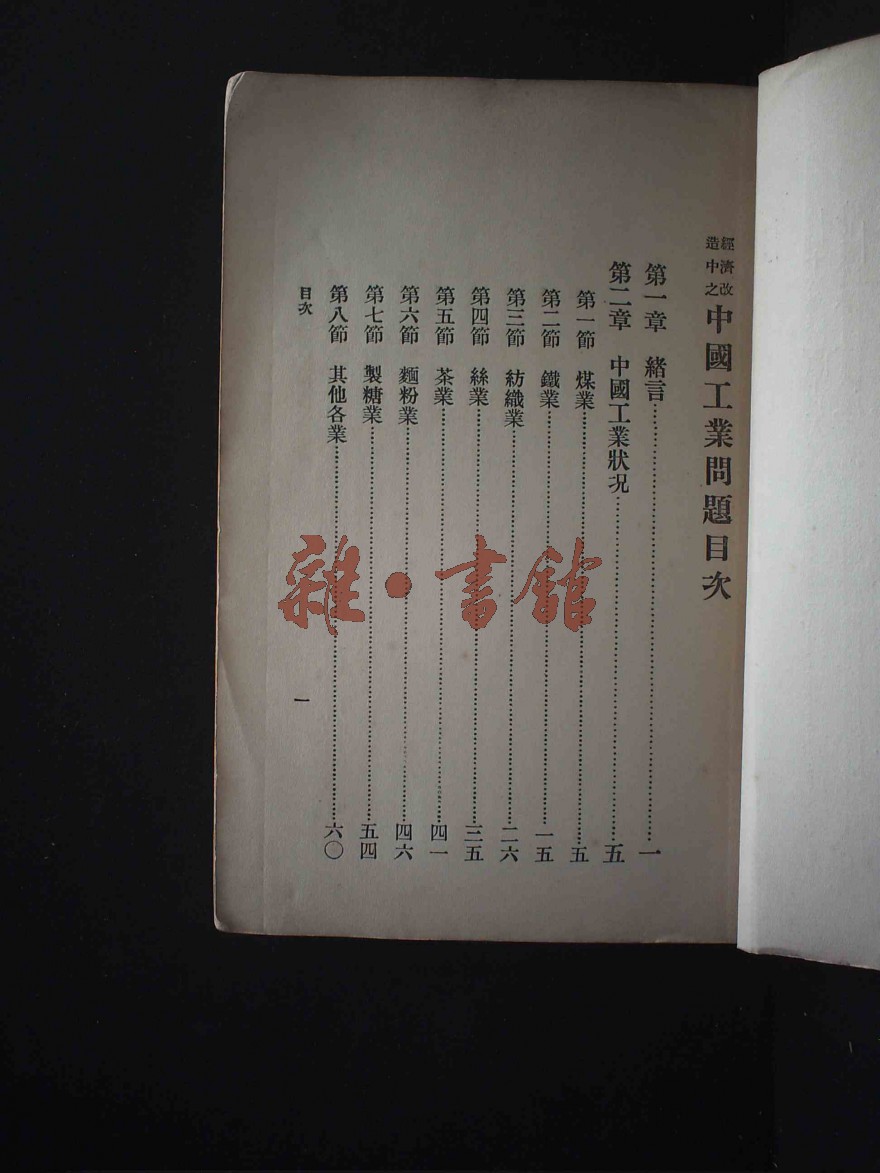 經濟改造中之中國工業問題目次
第一章　緒言……一
第二章　中國工業狀況……五
第一節　煤業……五
第二節　鐵業……一五
第三節　紡織業……二六
第四節　絲業……三五
第五節　茶業……四一
第六節　麵粉業……四六
第七節　製糖業……五四
第八節　其他各業……六〇
目次　一
雜·書館